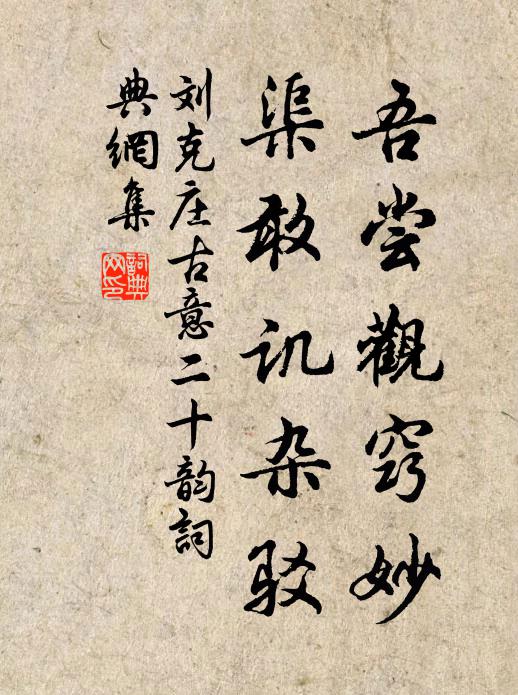 吾尝觀窍妙
渠敢讥杂驳
刘克庄古意二十韵詞
典網集
詞典网印